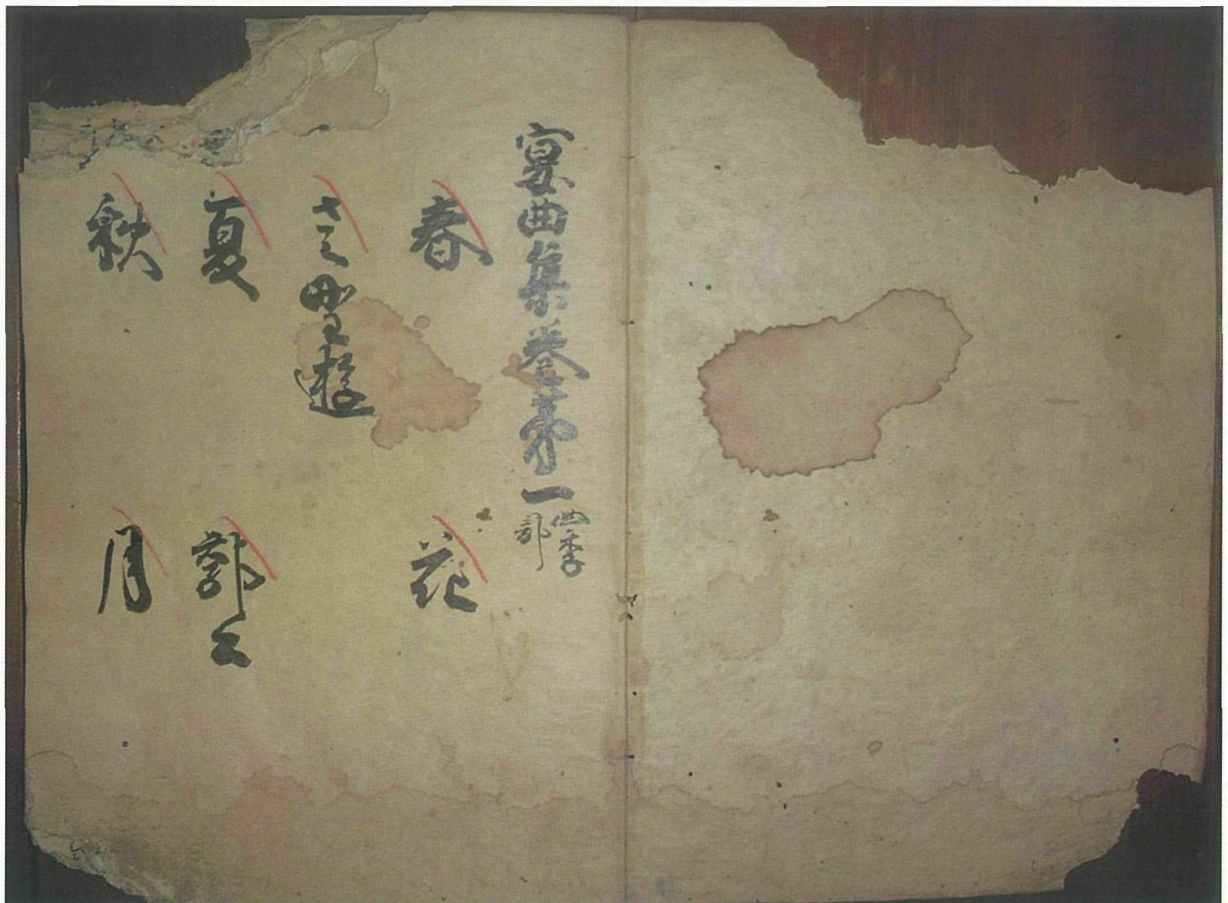 宴曲集巻第一 四季部
春 花
春野遊
夏 郭公
秋 月